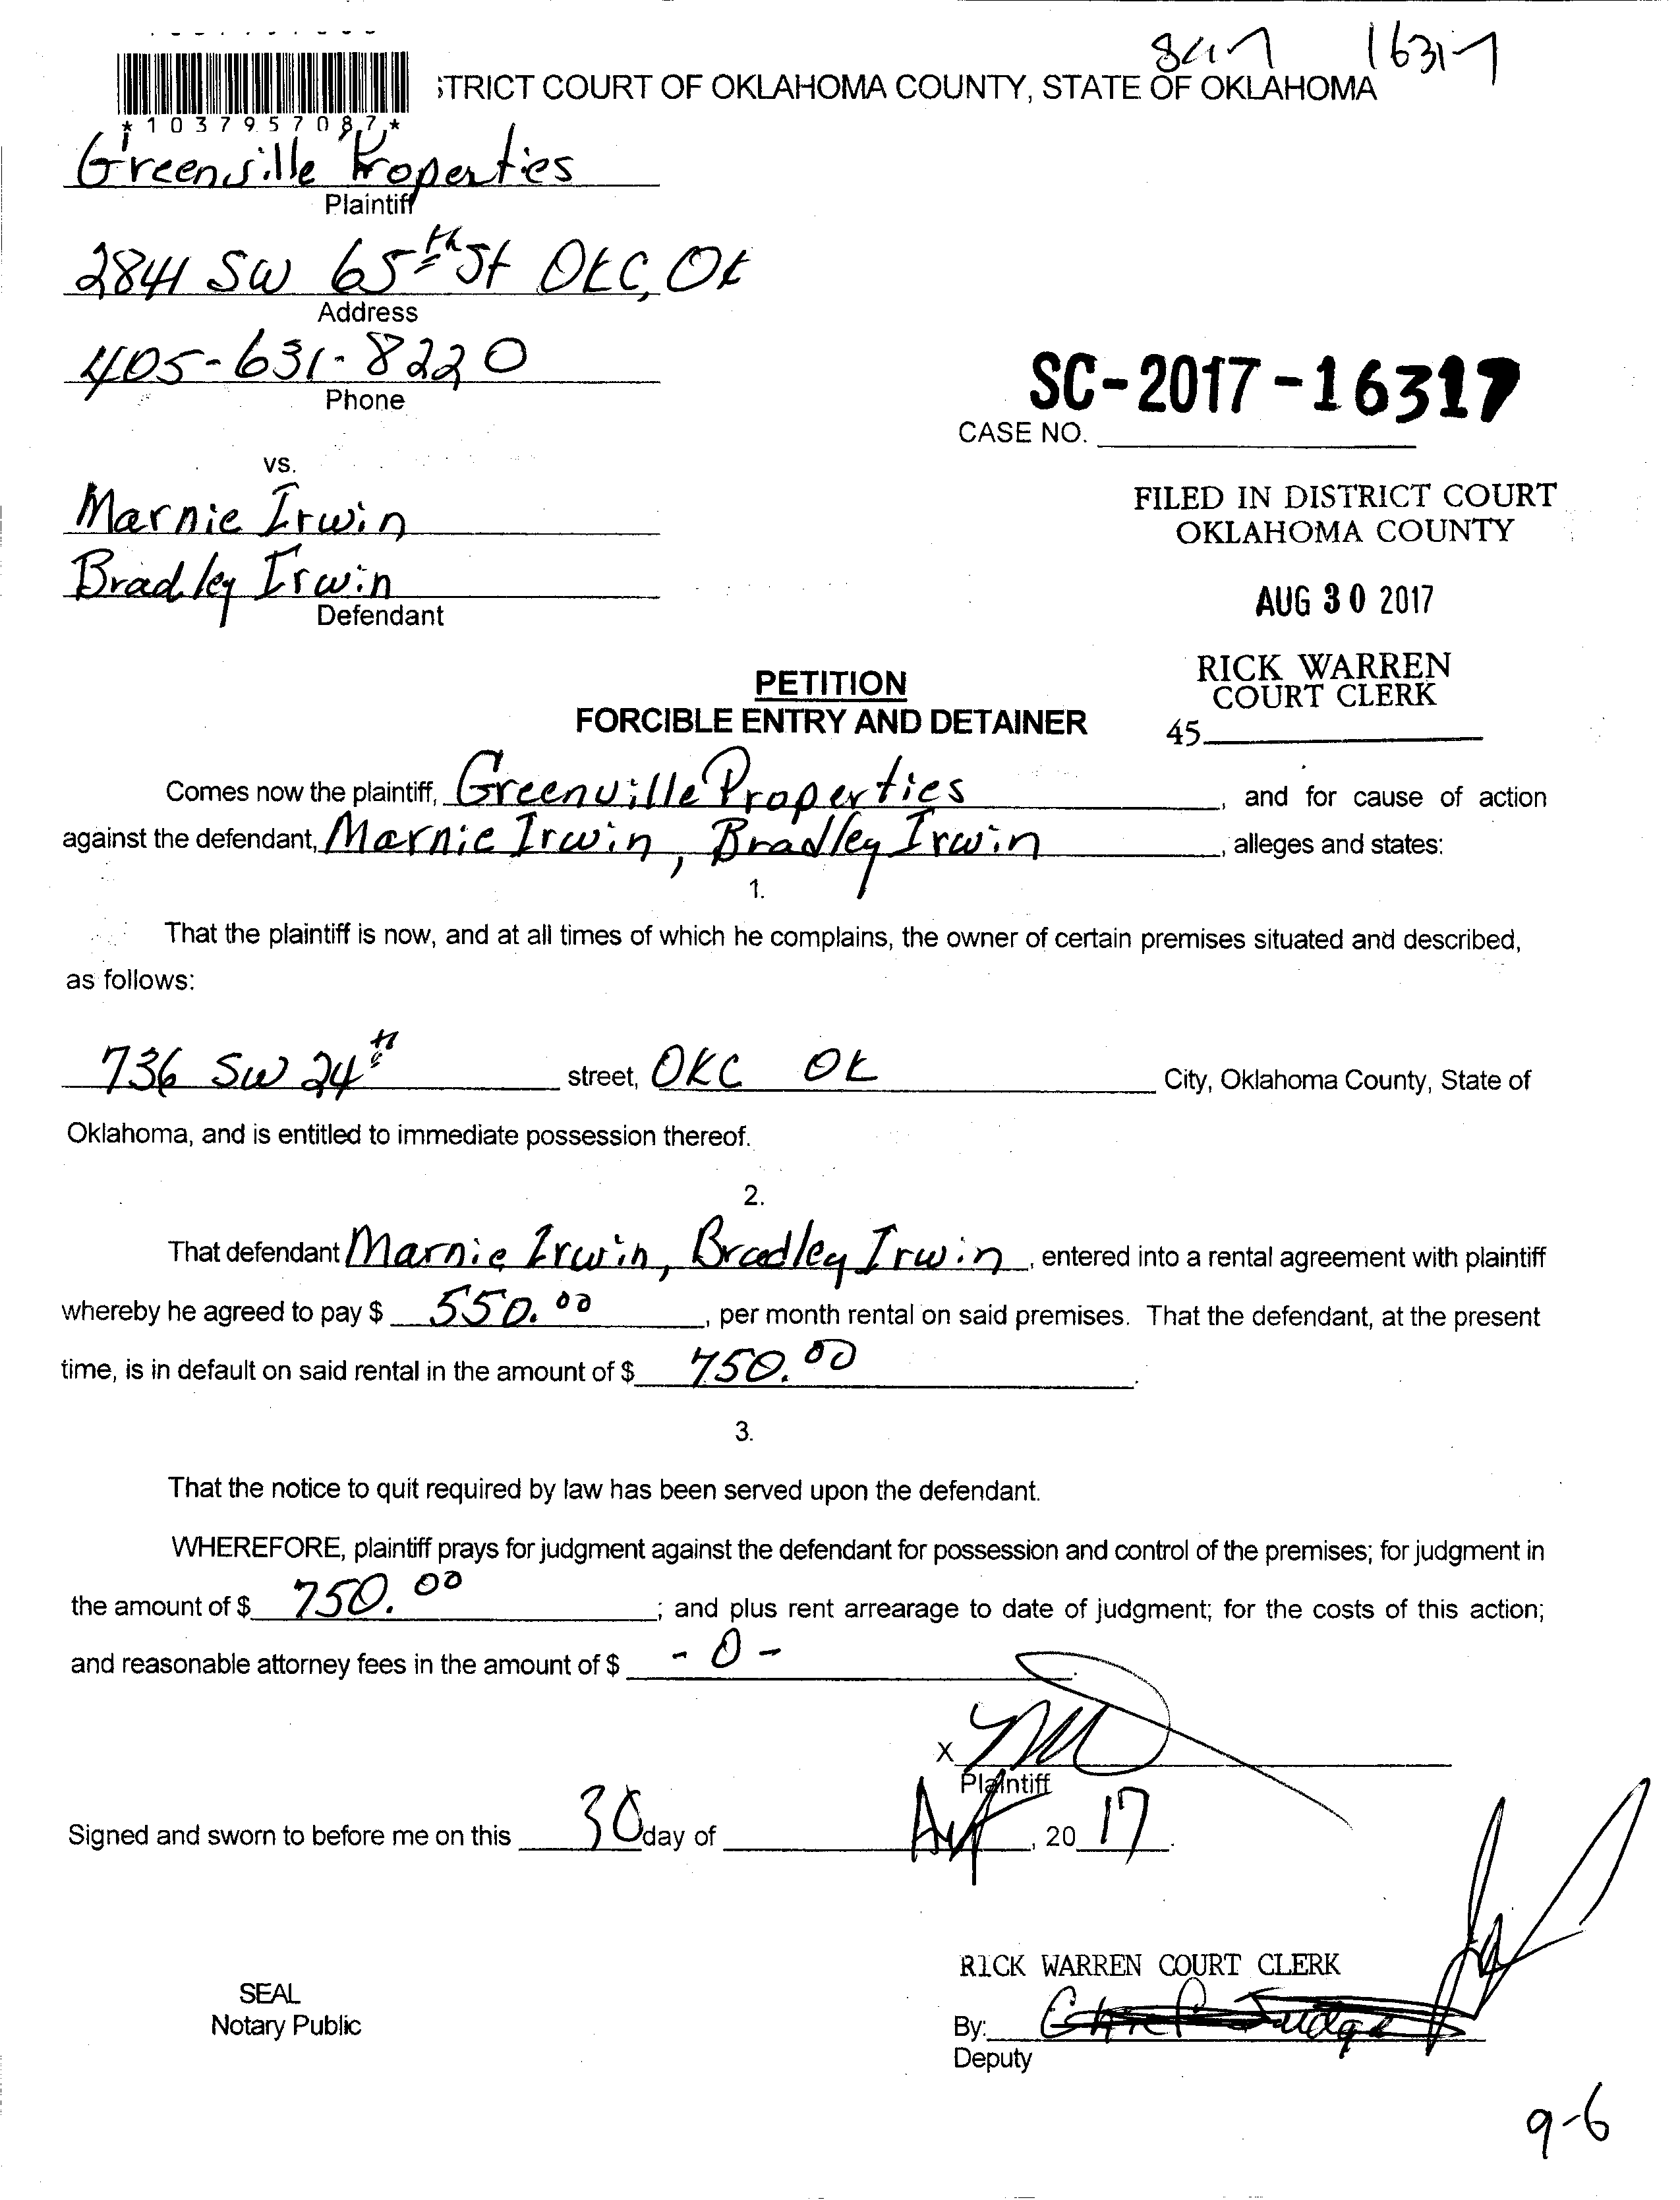 16317
STRICT COURT OF OKLAHOMA COUNTY, STATE OF OKLAHOMA
*1037957087*
Greenville Properties
Plaintiff
2841 SW 65th St OKC, OK
Address
405-631-8220
Phone
SC-2017-16317
CASE NO.
vs.
Marnie Irwin
Bradley Irwin
Defendant
FILED IN DISTRICT COURT
OKLAHOMA COUNTY
AUG 30 2017
RICK WARREN
COURT CLERK
45
PETITION
FORCIBLE ENTRY AND DETAINER
Comes now the plaintiff, Greenville Properties, and for cause of action
against the defendant, Marnie Irwin, Bradley Irwin, alleges and states:
1.
That the plaintiff is now, and at all times of which he complains, the owner of certain premises situated and described,
as follows:
736 SW 24th street, OKC OK City, Oklahoma County, State of
Oklahoma, and is entitled to immediate possession thereof.
2.
That defendant Marnie Irwin, Bradley Irwin, entered into a rental agreement with plaintiff
whereby he agreed to pay $ 550.00, per month rental on said premises. That the defendant, at the present
time, is in default on said rental in the amount of $ 750.00.
3.
That the notice to quit required by law has been served upon the defendant.
WHEREFORE, plaintiff prays for judgment against the defendant for possession and control of the premises; for judgment in
the amount of $ 750.00; and plus rent arrearage to date of judgment; for the costs of this action;
and reasonable attorney fees in the amount of $ -0-.
X
Plaintiff
Signed and sworn to before me on this 30 day of Aug, 2017.
RICK WARREN COURT CLERK
SEAL
Notary Public
By: Chief Judge
Deputy
9-6